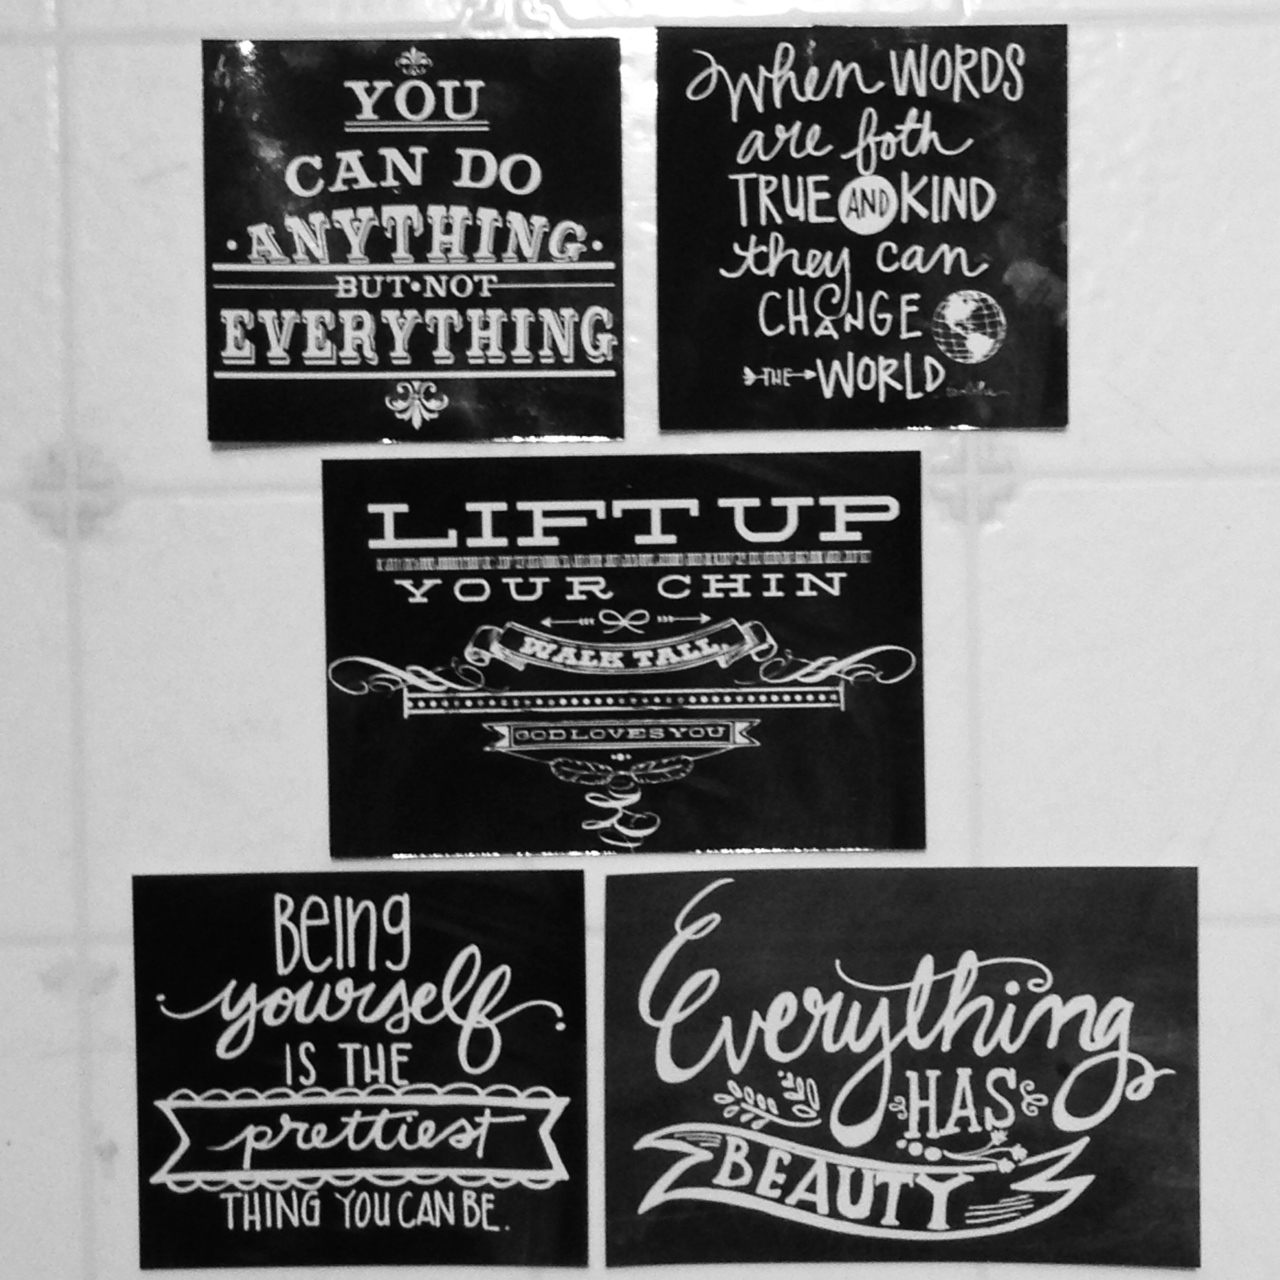 YOU
CAN DO
ANYTHING
BUT•NOT
EVERYTHING
When WORDS
are both
TRUE AND KIND
they can
CHANGE
THE WORLD
LIFT UP
YOUR CHIN
WALK TALL.
GOD LOVES YOU
Being
yourself
IS THE
prettiest
THING YOU CAN BE.
Everything
HAS
BEAUTY